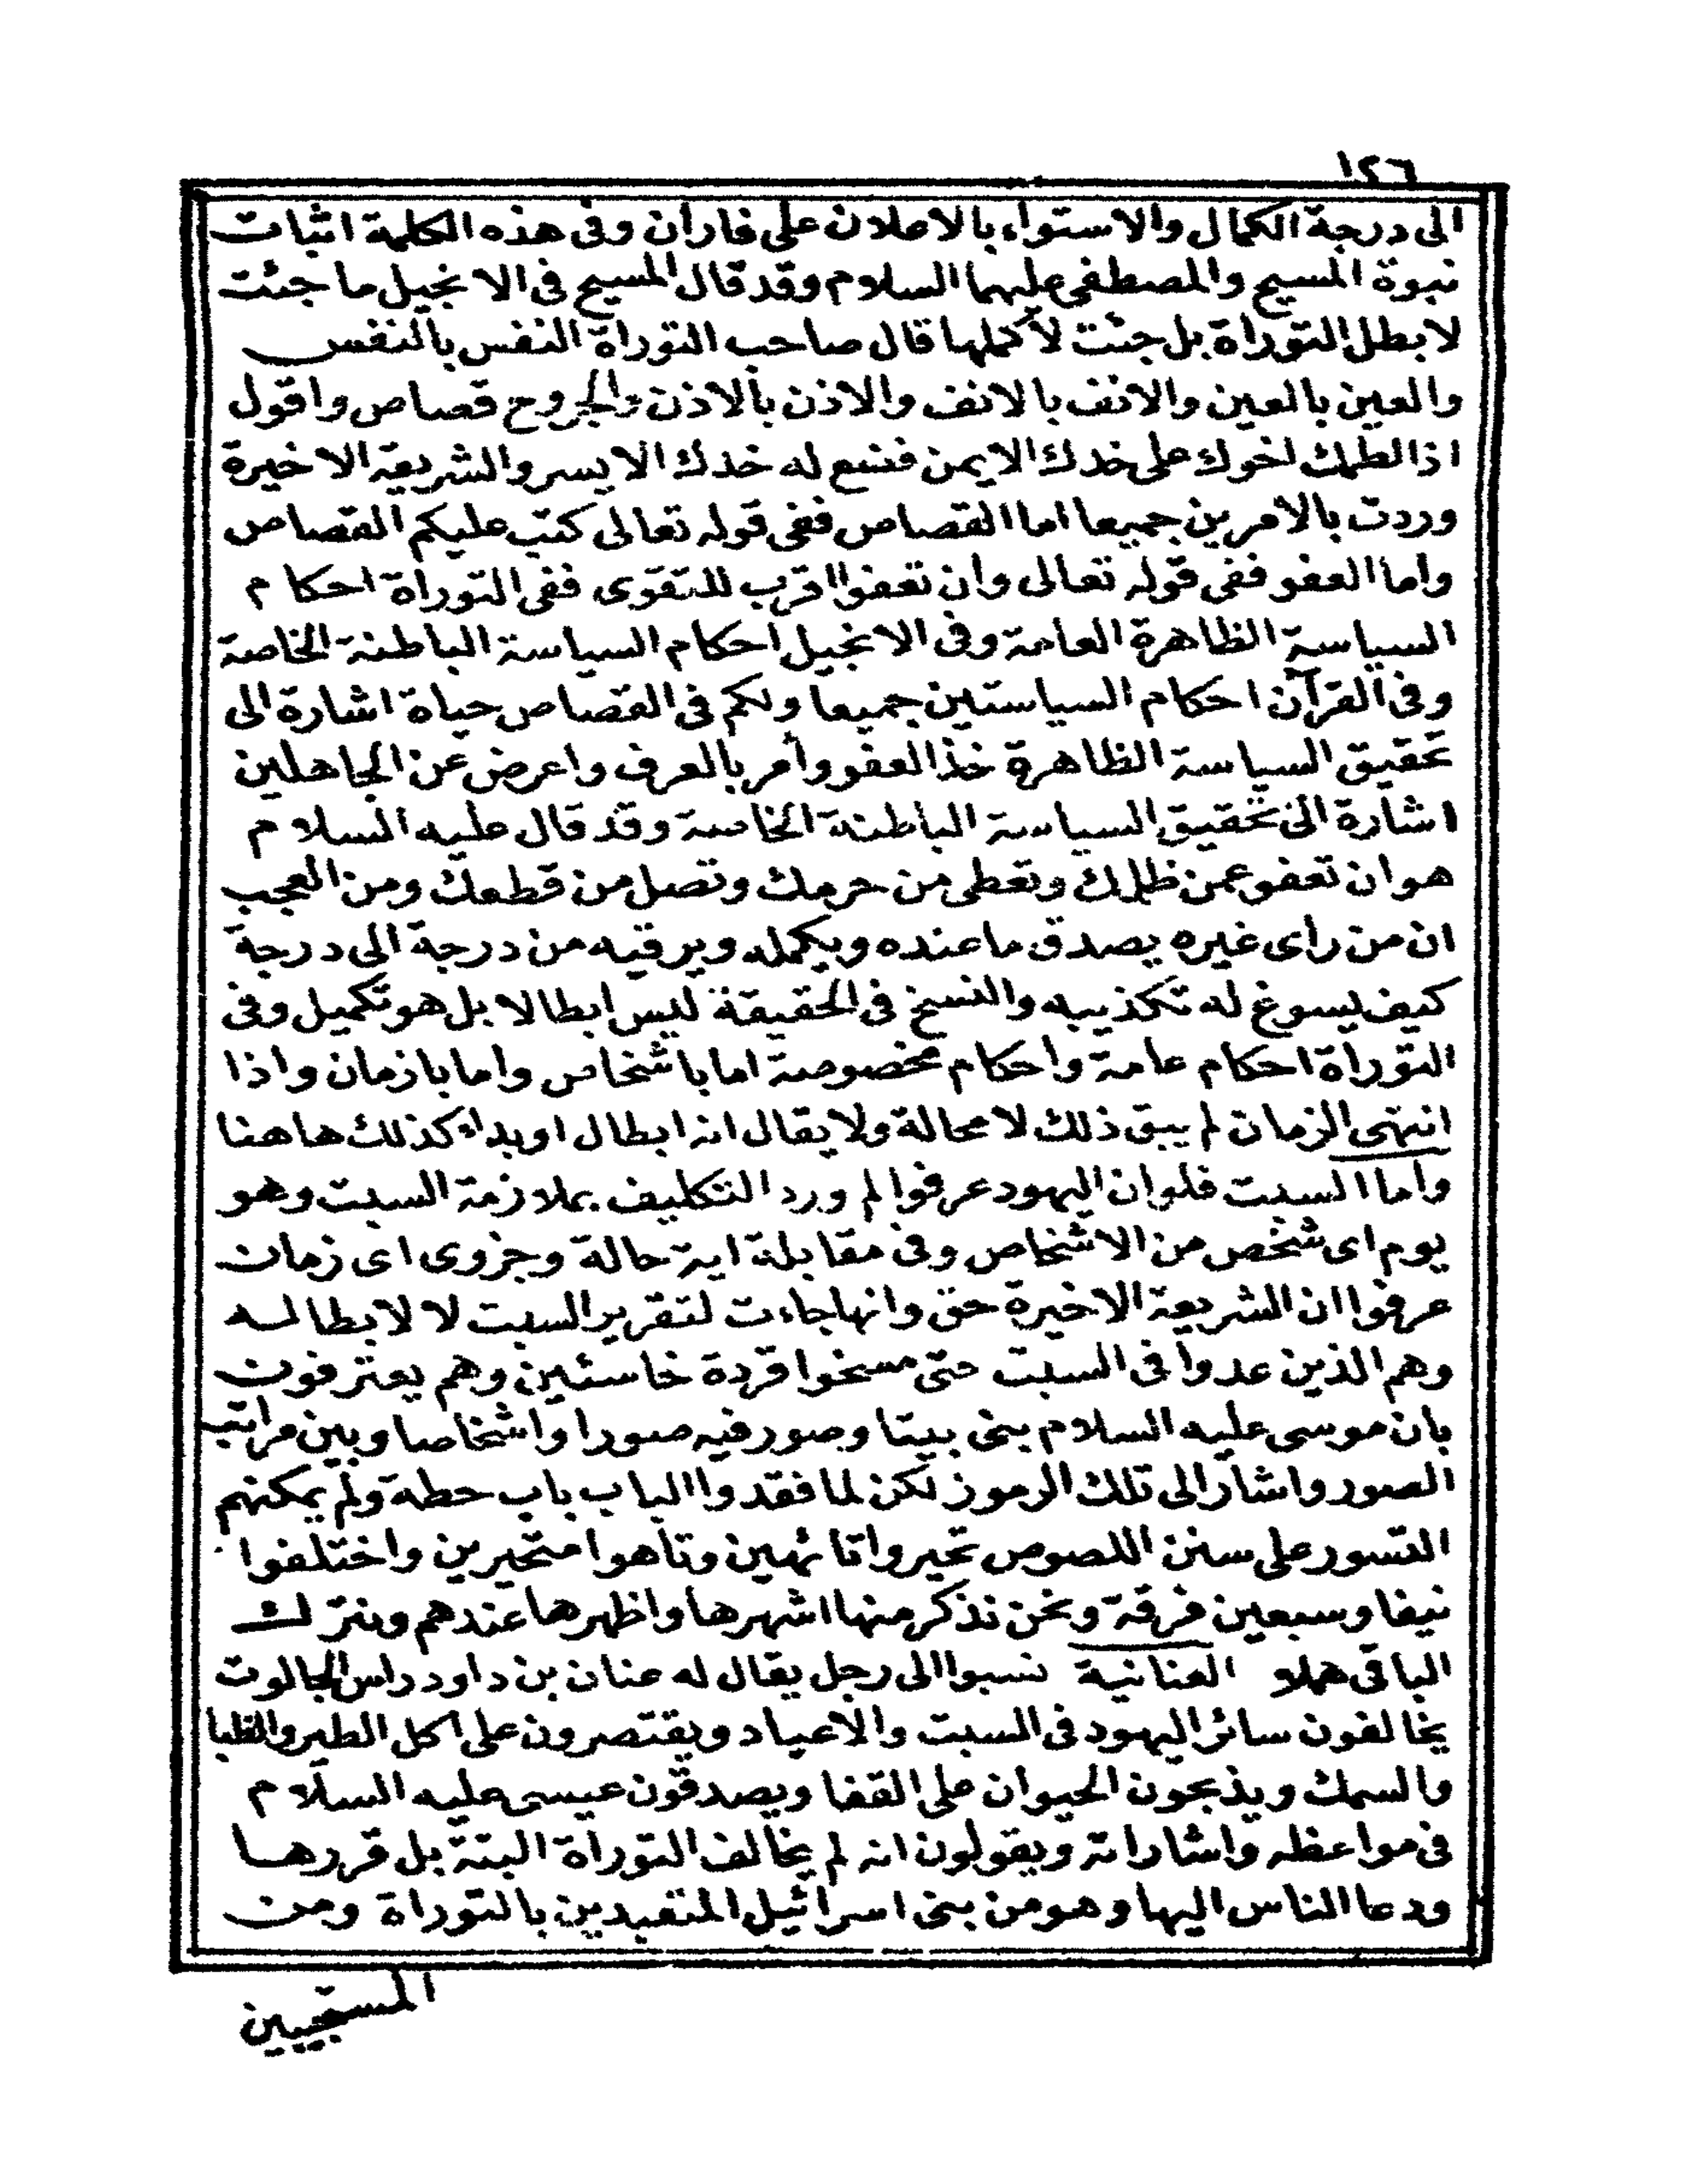 ١٢٦
الى درجة الكمال والاستواء بالاعلان على فاران وفى هذه الكلمة اثبات
نبوة المسيح والمصطفى عليهما السلام وقد قال المسيح فى الانجيل ما جئت
لابطل التوراة بل جئت لأكملها قال صاحب التوراة النفس بالنفس
والعين بالعين والانف بالانف والاذن بالاذن والجروح قصاص واقول
اذا لطمك اخوك على خدك الايمن فضع له خدك الايسر والشريعة الاخيرة
وردت بالامرين جميعا اما القصاص ففى قوله تعالى كتب عليكم القصاص
واما العفو ففى قوله تعالى وان تعفوا اقرب للتقوى ففى التوراة احكام
السياسة الظاهرة العامة وفى الانجيل احكام السياسة الباطنة الخاصة
وفى القرآن احكام السياستين جميعا ولكم فى القصاص حياة اشارة الى
تحقيق السياسة الظاهرة خذ العفو وأمر بالعرف واعرض عن الجاهلين
اشارة الى تحقيق السياسة الباطنة الخاصة وقد قال عليه السلام
هو ان تعفو عمن ظلمك وتعطى من حرمك وتصل من قطعك ومن العجب
ان من راى غيره يصدق ما عنده ويكمله ويرقيه من درجة الى درجة
كيف يسوغ له تكذيبه والنسخ فى الحقيقة ليس ابطالا بل هو تكميل وفى
التوراة احكام عامة واحكام مخصوصة اما باشخاص واما بازمان واذا
انتهى الزمان لم يبق ذلك لا محالة ولا يقال انه ابطال او بداء كذلك هاهنا
واما السبت فلو ان اليهود عرفوا لم ورد التكليف بملازمة السبت وهو
يوم اى شخص من الاشخاص وفى مقابلة اية حالة وجزوى اى زمان
عرفوا ان الشريعة الاخيرة حق وانها جاءت لتقرير السبت لا لابطاله
وهم الذين عدوا فى السبت حتى مسخوا قردة خاسئين وهم يعترفون
بان موسى عليه السلام بنى بيتا وصور فيه صورا واشخاصا وبين مراتب
الصور واشار الى تلك الرموز لكن لما فقدوا الباب باب حطة ولم يمكنهم
التسور على سنن اللصوص تحيروا تائهين وتاهوا متحيرين واختلفوا
نيفا وسبعين فرقة ونحن نذكر منها اشهرها واظهرها عندهم ونترك
الباقى هملا العنانية نسبوا الى رجل يقال له عنان بن داود راس الجالوت
يخالفون سائر اليهود فى السبت والاعياد ويقتصرون على اكل الطير والظبا
والسمك ويذبحون الحيوان على القفا ويصدقون عيسى عليه السلام
فى مواعظه واشاراته ويقولون انه لم يخالف التوراة البتة بل قررها
ودعا الناس اليها وهو من بنى اسرائيل المتعبدين بالتوراة ومن
المستجيبين